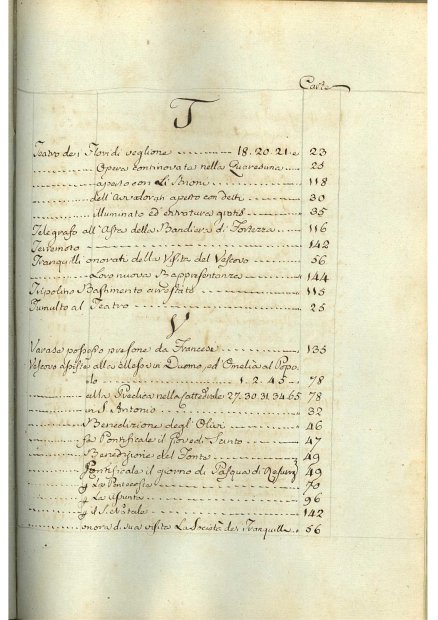 Carte
T
Teatro dei Floridi veglione 18. 20. 21. e 23
Opera continovata nella Quaresima 25
aperto con Li Bironi 118
dell'Avvalorati aperto con detti 30
illuminato ed entratura gratis 35
Telegrafo all'Asta della Bandiera di Fortezza 116
Terremoto 142
Tranquilli onorati della Visita del Vescovo 56
Loro nuova Rappresentanza 144
Tripolino Bastimento arrestato 115
Tumulto al Teatro 25
V
Varase possesso presone da Francese 135
Vescovo assiste alla Messa in Duomo, ed Omelia al Popo
lo 1. 2. 45 78
alla Predica nella Cattedrale 27. 30. 31. 34. 65 78
in S. Antonio 32
Benedizione degl'Olivi 46
fa Pontificale il Giovedì Santo 47
Benedizione del Fonte 49
Pontificale il giorno di Pasqua di Resurr 49
La Pentecoste 70
La Assunta 96
il S. Natale 142
onora di sua visita La Società dei Tranquilli 56